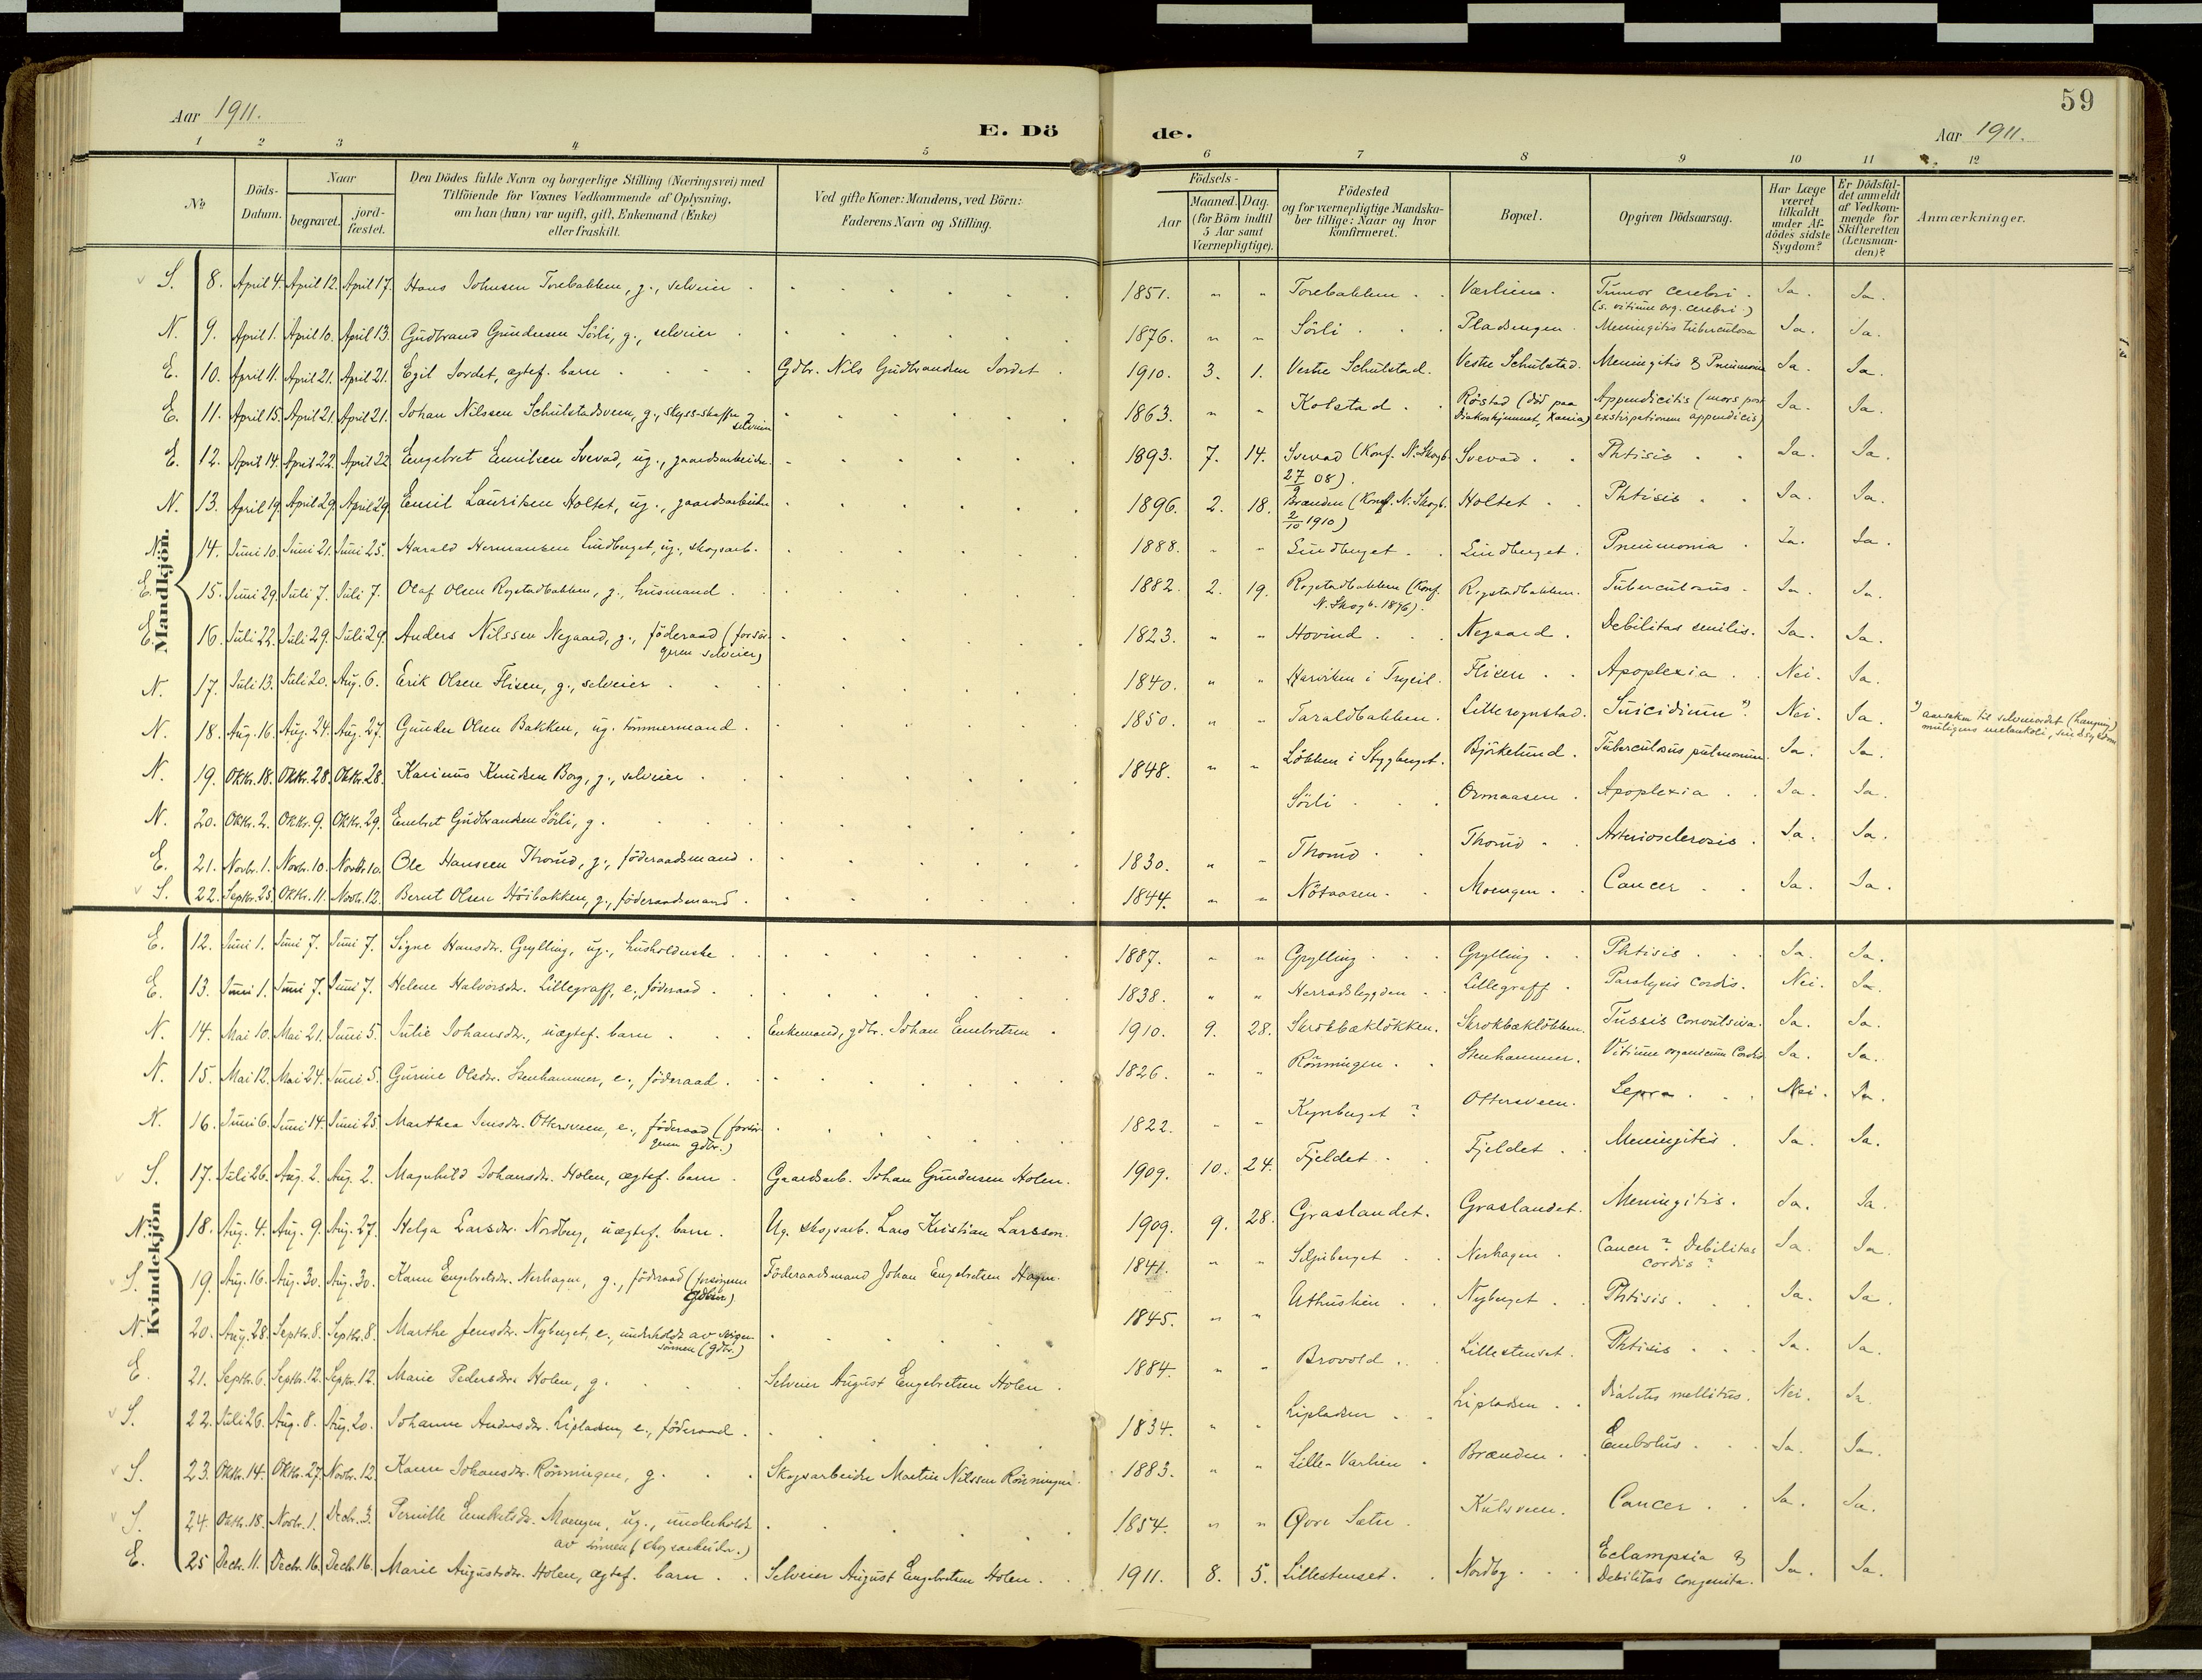 Aar 1911.
E. Dö
de.
Aar 1911.
59
1 2 3 4 5 6 7 8 9 10 11 12
No.
Döds-Datum.
Naar
begravet.
jord-fæstet.
Den Dödes fulde Navn og borgerlige Stilling (Næringsvei) med
Tilföiende for Voxnes Vedkommende af Oplysning,
om han (hun) var ugift, gift, Enkemand (Enke)
eller fraskilt.
Ved gifte Koner: Mandens, ved Börn:
Faderens Navn og Stilling.
Födsels-
Aar
Maaned. Dag.
(for Börn indtil
5 Aar samt
Værnepligtige).
Födested
og for værnepligtige Mandska-
ber tillige: Naar og hvor
konfirmeret.
Bopæl.
Opgiven Dödsaarsag.
Har Læge
været
tilkaldt
under Af-
dödes sidste
Sygdom?
Er Dödsfal-
det anmeldt
af Vedkom-
mende for
Skifteretten
(Lensman-
den)?
Anmærkninger.
Mandkjön.
S. 8. April 4. April 12. April 17. Hans Johnsen Torebakken, g., selveier 1851. " " Torebakken. Værlien. Tumor cerebri. (s. vitium org. cerebri.) Ja. Ja.
N. 9. April 1. April 10. April 13. Gudbrand Gundersen Sörli, g., selveier 1876. " " Sörli Pladsengen. Meningitis tuberculosa Ja. Ja.
E. 10. April 11. April 21. April 21. Egil Jordet, ægtef. barn Gdbr. Nils Gudbrandsen Jordet 1910. 3. 1. Vestre Schulstad. Vestre Schulstad. Meningitis & Pneumonia Ja. Ja.
E. 11. April 15. April 21. April 21. Johan Nilssen Schulstadsveen, g., skyss-skaffer selveier 1863. " " Kolstad. Röstad (död paa Diakonhjemmet, Xania) Appendicitis (mors post exstirpationem appendicis) Ja. Ja.
E. 12. April 14. April 22. April 22 Engebret Emilsen Svevad, ug., gaardsarbeider. 1893. 7. 14. Svevad (Konf. N. Skogb. 27/9 08). Svevad. Phtisis Ja. Ja.
N. 13. April 19. April 29. April 29. Emil Lauritsen Holtet, ug., gaardsarbeider 1896. 2. 18. Brænden (Konf. N. Skogb. 2/10 1910) Holtet Phtisis Ja. Ja.
N. 14. Juni 10. Juni 21. Juni 25. Harald Hermansen Lindberget, ug., skogsarb. 1888. " " Lindberget. Lindberget. Pneumonia Ja. Ja.
E. 15. Juni 29. Juli 7. Juli 7. Olaf Olsen Rogstadbakken, g., husmand. 1882. 2. 19. Rogstadbakken (Konf. N. Skogb. 1896). Rogstadbakken. Tuberculosis Ja. Ja.
E. 16. Juli 22. Juli 29. Juli 29. Anders Nilssen Negaard, g., föderaad (forsör-geren selveier) 1823. " " Hovind Negaard. Debilitas senilis. Ja. Ja.
N. 17. Juli 13. Juli 20. Aug. 6. Erik Olsen Flisen, g., selveier 1840. " " i Trysil. Flisen Apoplexia Nei. Ja.
N. 18. Aug. 16. Aug. 24. Aug. 27. Gunder Olsen Bakken, ug. tömmermand. 1850. " " Taraldbakken. Lillerognstad. Suicidium *). Nei. Ja. *) aarsaken til selvmordet (hængning) muligens melankoli, sindssygdom
N. 19. Oktbr. 18. Oktbr. 28. Oktbr. 28. Karinus Knudsen Borg, g., selveier 1848. " " Lökken i Stygberget. Björkelund. Tuberculosis pulmonum. Ja. Ja.
N. 20. Oktbr. 2. Oktbr. 9. Oktbr. 29. Embret Gudbrandsen Sörli, g. Sörli Ormaasen Apoplexia Ja. Ja.
E. 21. Novbr. 1. Novbr. 10. Novbr. 10. Ole Hanssen Thorud, g., föderaadsmand. 1830. " " Thorud Thorud Arteriosclerosis. Ja. Ja.
S. 22. Septbr. 25. Oktbr. 11. Novbr. 12. Bernt Olsen Höibakken, g., föderaadsmand. 1844. " " Nötaasen. Moengen. Cancer Ja. Ja.
Kvindekjön
E. 12. Juni 1. Juni 7. Juni 7. Signe Hansdtr. Grylling, ug., husholderske 1887. " " Grylling Grylling. Phtisis Ja. Ja.
E. 13. Juni 1. Juni 7. Juni 7. Helene Halvorsdtr. Lillegraff, e., föderaad. 1838. " " Herradsbygden Lillegraff. Paralysis cordis. Nei. Ja.
N. 14. Mai 10. Mai 21. Juni 5. Julie Johansdtr., uægtef. barn Enkemand, gdbr. Johan Embretsen 1910. 9. 28. Skrokbæklökken. Skrokbæklökken. Tussis convulsiva. Ja. Ja.
N. 15. Mai 12. Mai 24. Juni 5. Gurine Olsdtr. Stenhammer, e., föderaad. 1826. " " Rönningen. Stenhammer. Vitium organicum cordis Ja. Ja.
N. 16. Juni 6. Juni 14. Juni 25. Marthea Jensdtr. Ottersveen, e., föderaad (forsör-geren gdbr.) 1822. " " Kynberget ? Ottersveen. Lepra. Nei. Ja.
S. 17. Juli 26. Aug. 2. Aug. 2. Magnhild Johansdtr. Holen, ægtef. barn Gaardsarb. Johan Gundersen Holen. 1909. 10. 24. Fjeldet Fjeldet Meningitis. Ja. Ja.
N. 18. Aug. 4. Aug. 9. Aug. 27. Helga Larsdtr. Nordberg, uægtef. barn. Ug. skogsarb. Lars Kristian Larsson. 1909. 9. 28. Graslandet. Graslandet. Meningitis. Ja. Ja.
S. 19. Aug. 16. Aug. 30. Aug. 30. Karen Engebretsdtr. Nerhagen, g., föderaad (forsörgeren Föderaadsmand Johan Engebretsen Hagen. 1841. " " Siljuberget Nerhagen. Cancer ? Debilitas cordis ? Ja. Ja.
N. 20. Aug. 28. Septbr. 8. Septbr. 8. Marthe Jensdtr. Nyberget, e., underholdt av svigersönnen (gdbr.) 1845. " " Nyberget. Phtisis Ja. Ja.
E. 21. Septbr. 6. Septbr. 12. Septbr. 12. Marie Pedersdtr. Holen, g. Selveier August Engebretsen Holen. 1884. " " Brovold. Lillestenset. Phtisis Ja. Ja.
S. 22. Juli 26. Aug. 8. Aug. 20. Johanne Andersdtr. Lipladsen, e., föderaad. 1834. " " Lipladsen Lipladsen Diabetes mellitus. Nei. Ja.
S. 23. Oktbr. 14. Oktbr. 27. Novbr. 12. Karen Johansdtr. Rönningen, g. Skogsarbeider Martin Nilssen Rönningen. 1883. " " Lille-Varlien Brænden. Embolus Ja. Ja.
S. 24. Oktbr. 18. Novbr. 1. Decbr. 3. Pernille Embretsdtr. Moengen, ug., underholdt av sönnen (skogsarbeider.) 1854. " " Øvre Sæter Kulsveen. Cancer Ja. Ja.
E. 25 Decbr. 11. Decbr. 16. Decbr. 16. Marie Augustsdtr. Holen, ægtef. barn Selveier August Engebretsen Holen. 1911. 8. 5. Lillestenset. Nordby Eclampsia & Debilitas congenita. Ja. Ja.